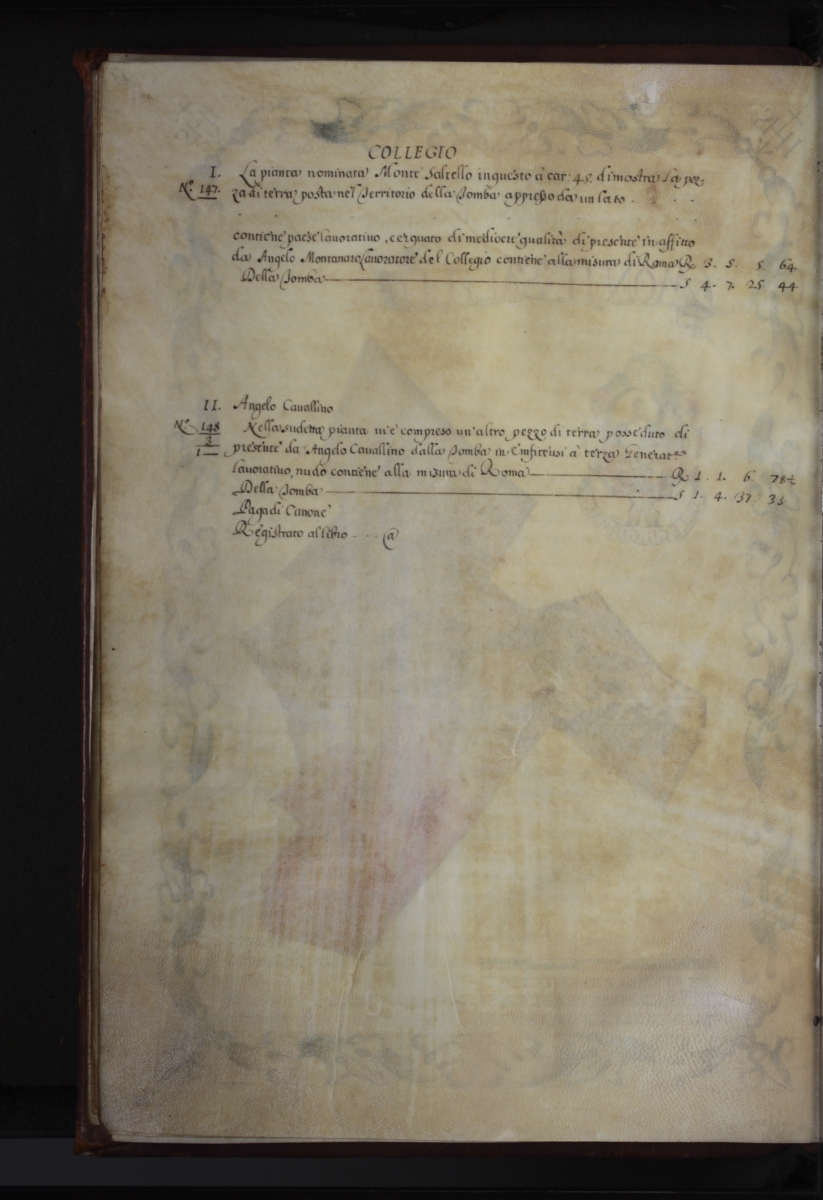 COLLEGIO
I. La pianta nominata Monte Saltello in questo à car: 45. dimostra la pez-
Nº 147. za di terra posta nel Territorio della Tomba appresso da un lato . . .
contiene paese lavorativo, cerquato di mediocre qualità di presente in affitto
da Angelo Montanaro lavoratore del Collegio contiene alla misura di Roma R 3. 5. 5 64
Della Tomba S 4. 7. 25 44
II. Angelo Cavallino
Nº 148 Nella sudetta pianta vi è compreso un'altro pezzo di terra posseduto di
presente da Angelo Cavallino dalla Tomba in Enfiteusi à terza
lavorativo, nudo contiene alla misura di Roma R 1. 1. 6 78½
Della Tomba S 1. 4. 37 35
Paga di Canone
Registrato al libro . . . @